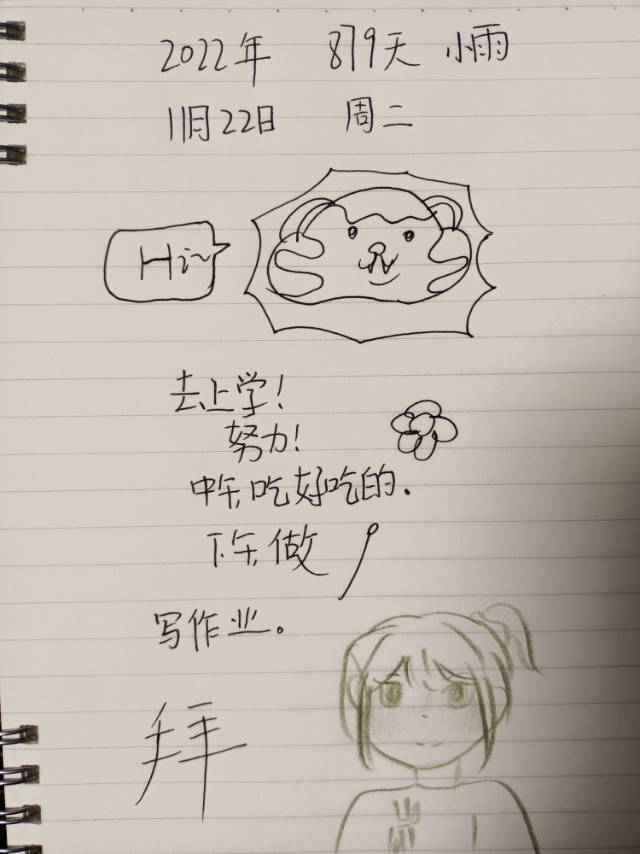 2022年 879天 小雨
11月22日 周二
Hi~
去上学！
努力！
中午吃好吃的.
下午做
写作业。
拜